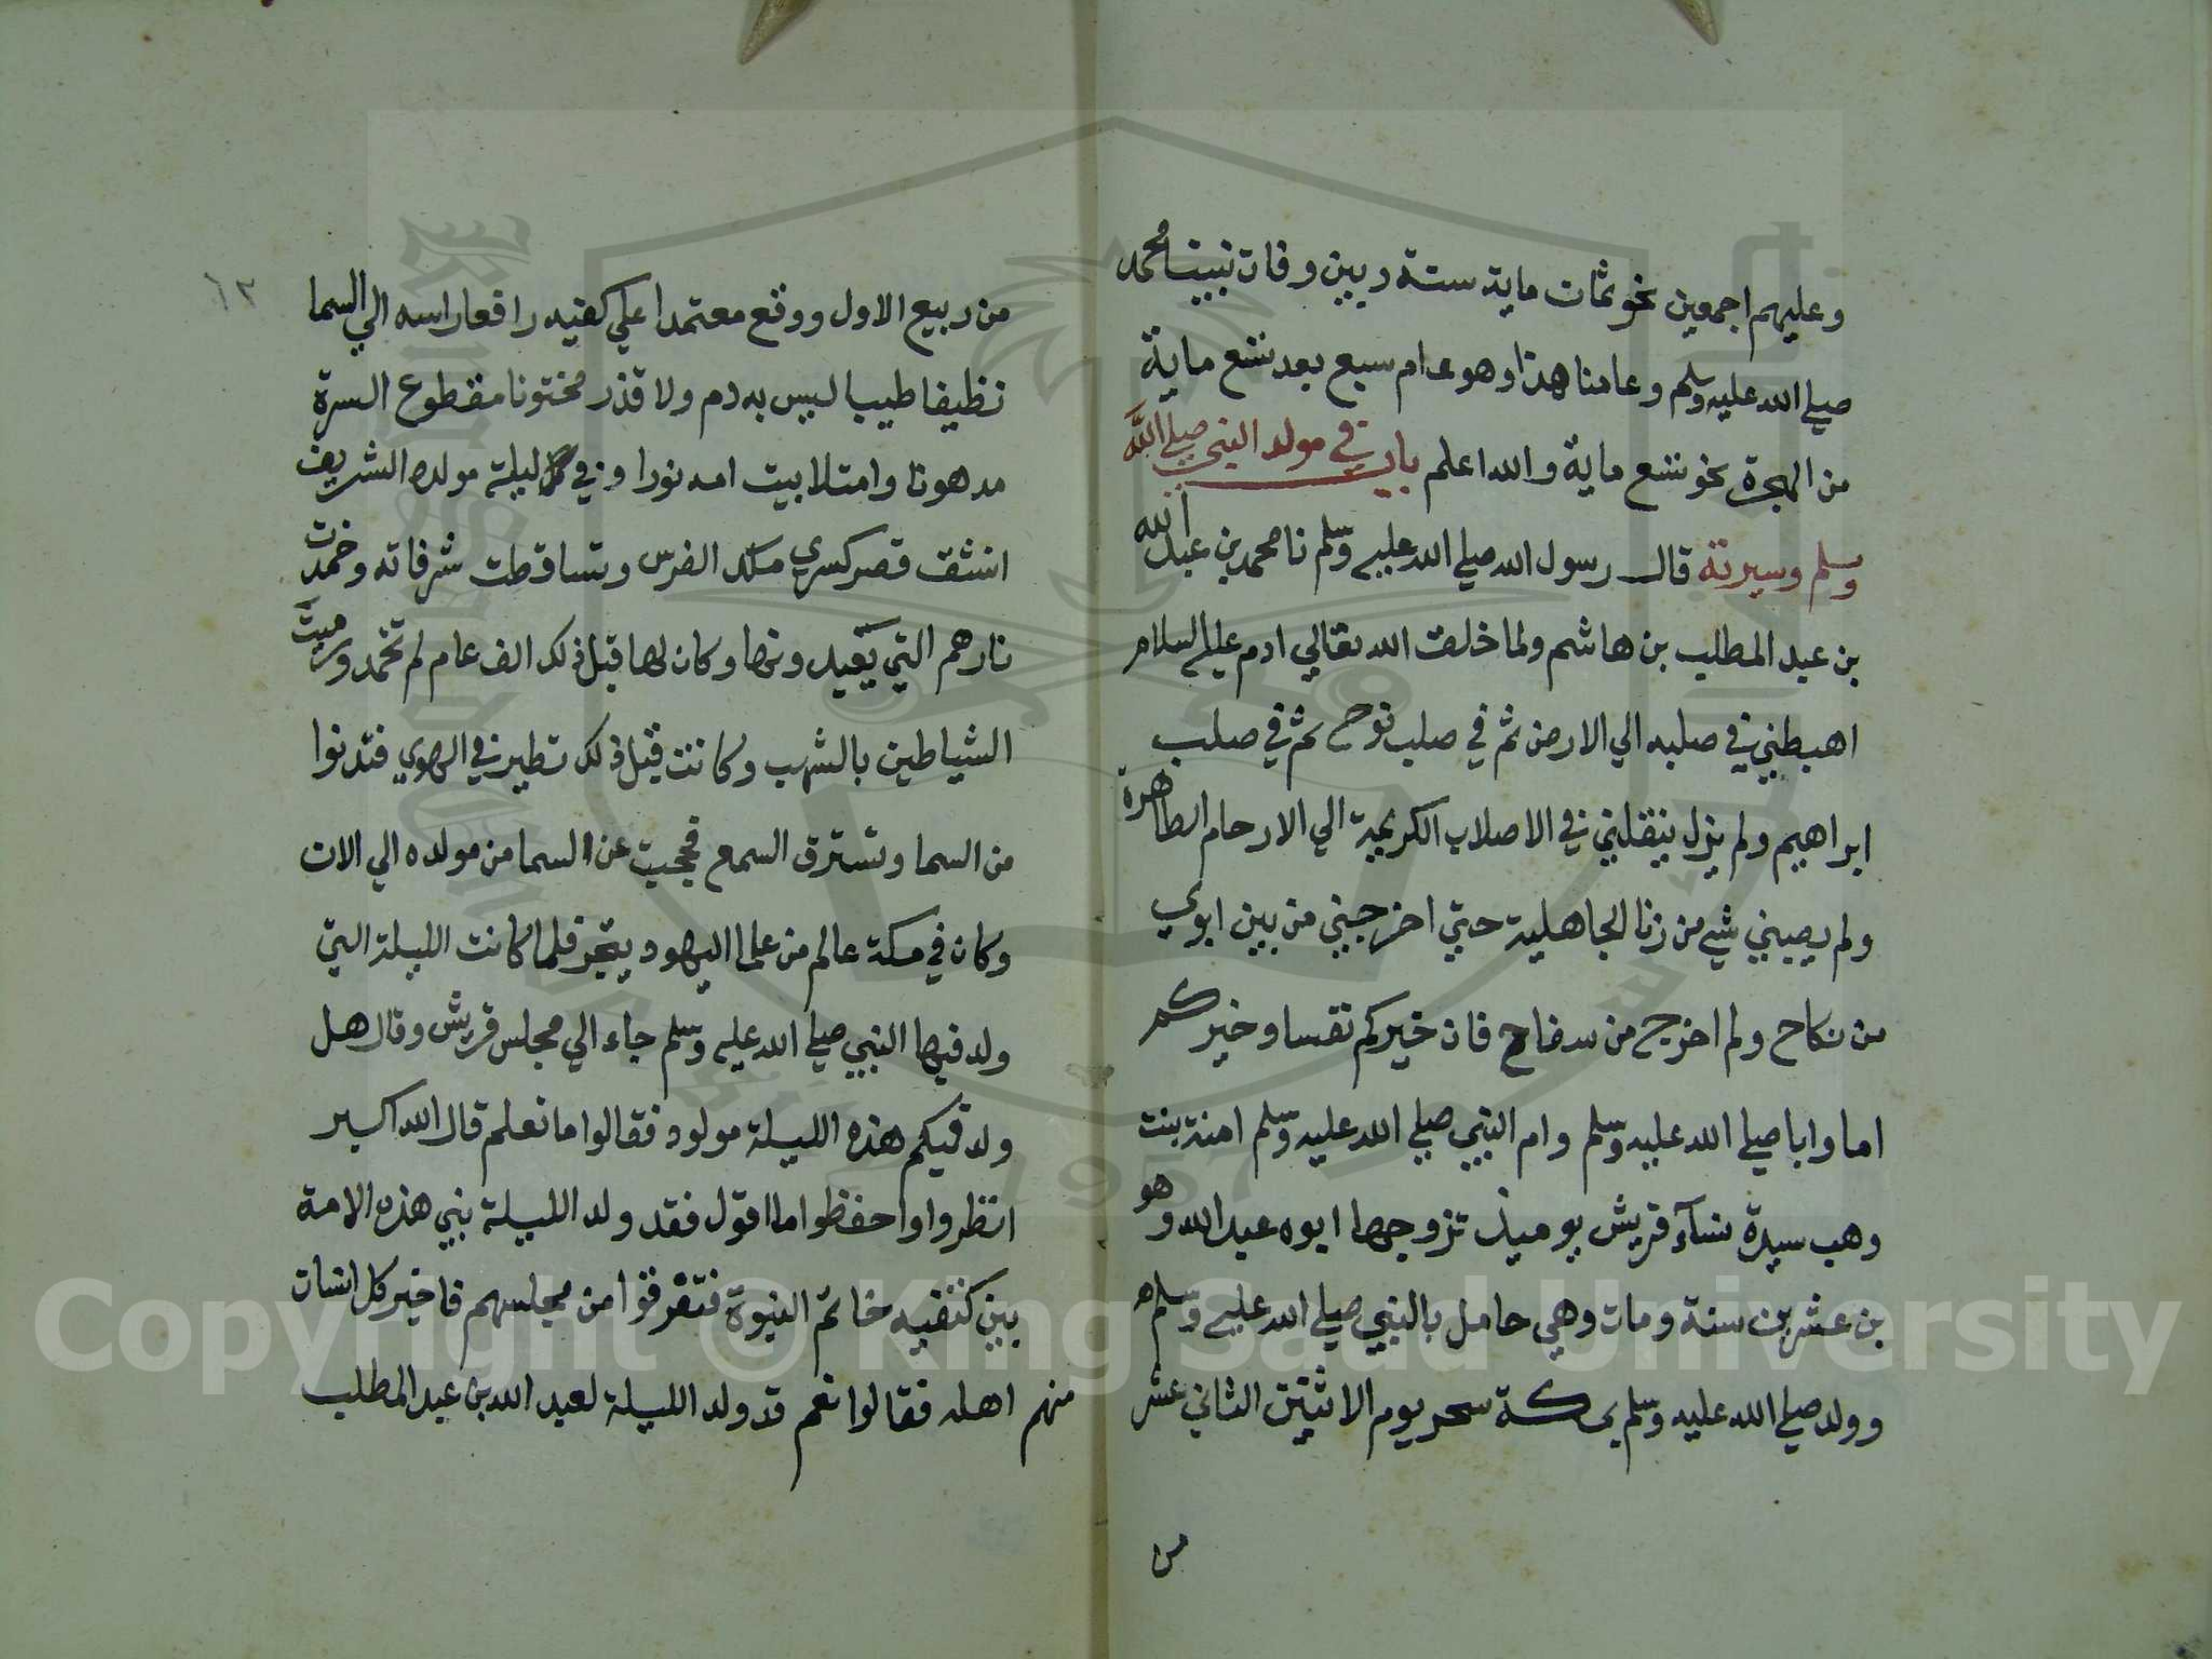 وعليهم اجمعين نحو ثمات ماية ستة وبين وفات نبينا محمد
صلي الله عليه وسلم وعامنا هذا وهو عام سبع بعد تسع ماية
من الهجرة نحو تسع ماية والله اعلم باب في مولد النبي صلي الله
وسلم وسيرته قال رسول الله صلي الله عليه وسلم انا محمد بن عبد الله
بن عبد المطلب بن هاشم ولما خلق الله تعالي ادم عليه السلام
اهبطني في صلبه الي الارض ثم في صلب نوح ثم في صلب
ابراهيم ولم يزل ينقلني في الاصلاب الكريمة الي الارحام الطاهرة
ولم يصبني شي من زنا الجاهلية حتي اخرجني من بين ابوي
من نكاح ولم اخرج من سفاح فان خيركم نفسا وخيركم
اما وابا صلي الله عليه وسلم وام النبي صلي الله عليه وسلم امنة بنت
وهب سيدة نسآء قريش يوميذ تزوجها ابوه عبد الله وهو
بن عشرين سنة ومات وهي حامل بالنبي صلي الله عليه وسلم
وولد صلي الله عليه وسلم بمكة سحر يوم الاثنين الثاني عشر
من
٦٣
من ربيع الاول ووقع معتمدا علي كفيه رافعا راسه الي السما
نظيفا طيبا ليس به دم ولا قذر مختونا مقطوع السرة
مدهونا وامتلا بيت امه نورا وفي ليلة مولده الشريف
انشق قصر كسري ملك الفرس وتساقطت شرفاته وخمدت
نارهم التي يعبدونها وكان لها قبل ذلك الف عام لم تخمد ورميت
الشياطين بالشهب وكانت قبل ذلك تطير في الهوي فتدنوا
من السما وتسترق السمع فحجبت عن السما من مولده الي الان
وكان في مكة عالم من علما اليهود يتجر فلما كانت الليلة التي
ولد فيها النبي صلي الله عليه وسلم جاء الي مجلس قريش وقال هل
ولد فيكم هذه الليلة مولود فقالوا ما نعلم قال الله اكبر
انظروا واحفظوا ما اقول فقد ولد الليلة نبي هذه الامة
بين كتفيه خاتم النبوة فتفرقوا من مجلسهم فاخبر كل انسان
منهم اهله فقالوا نعم قد ولد الليلة لعبد الله بن عبد المطلب
Copyright © King Saud University
1957